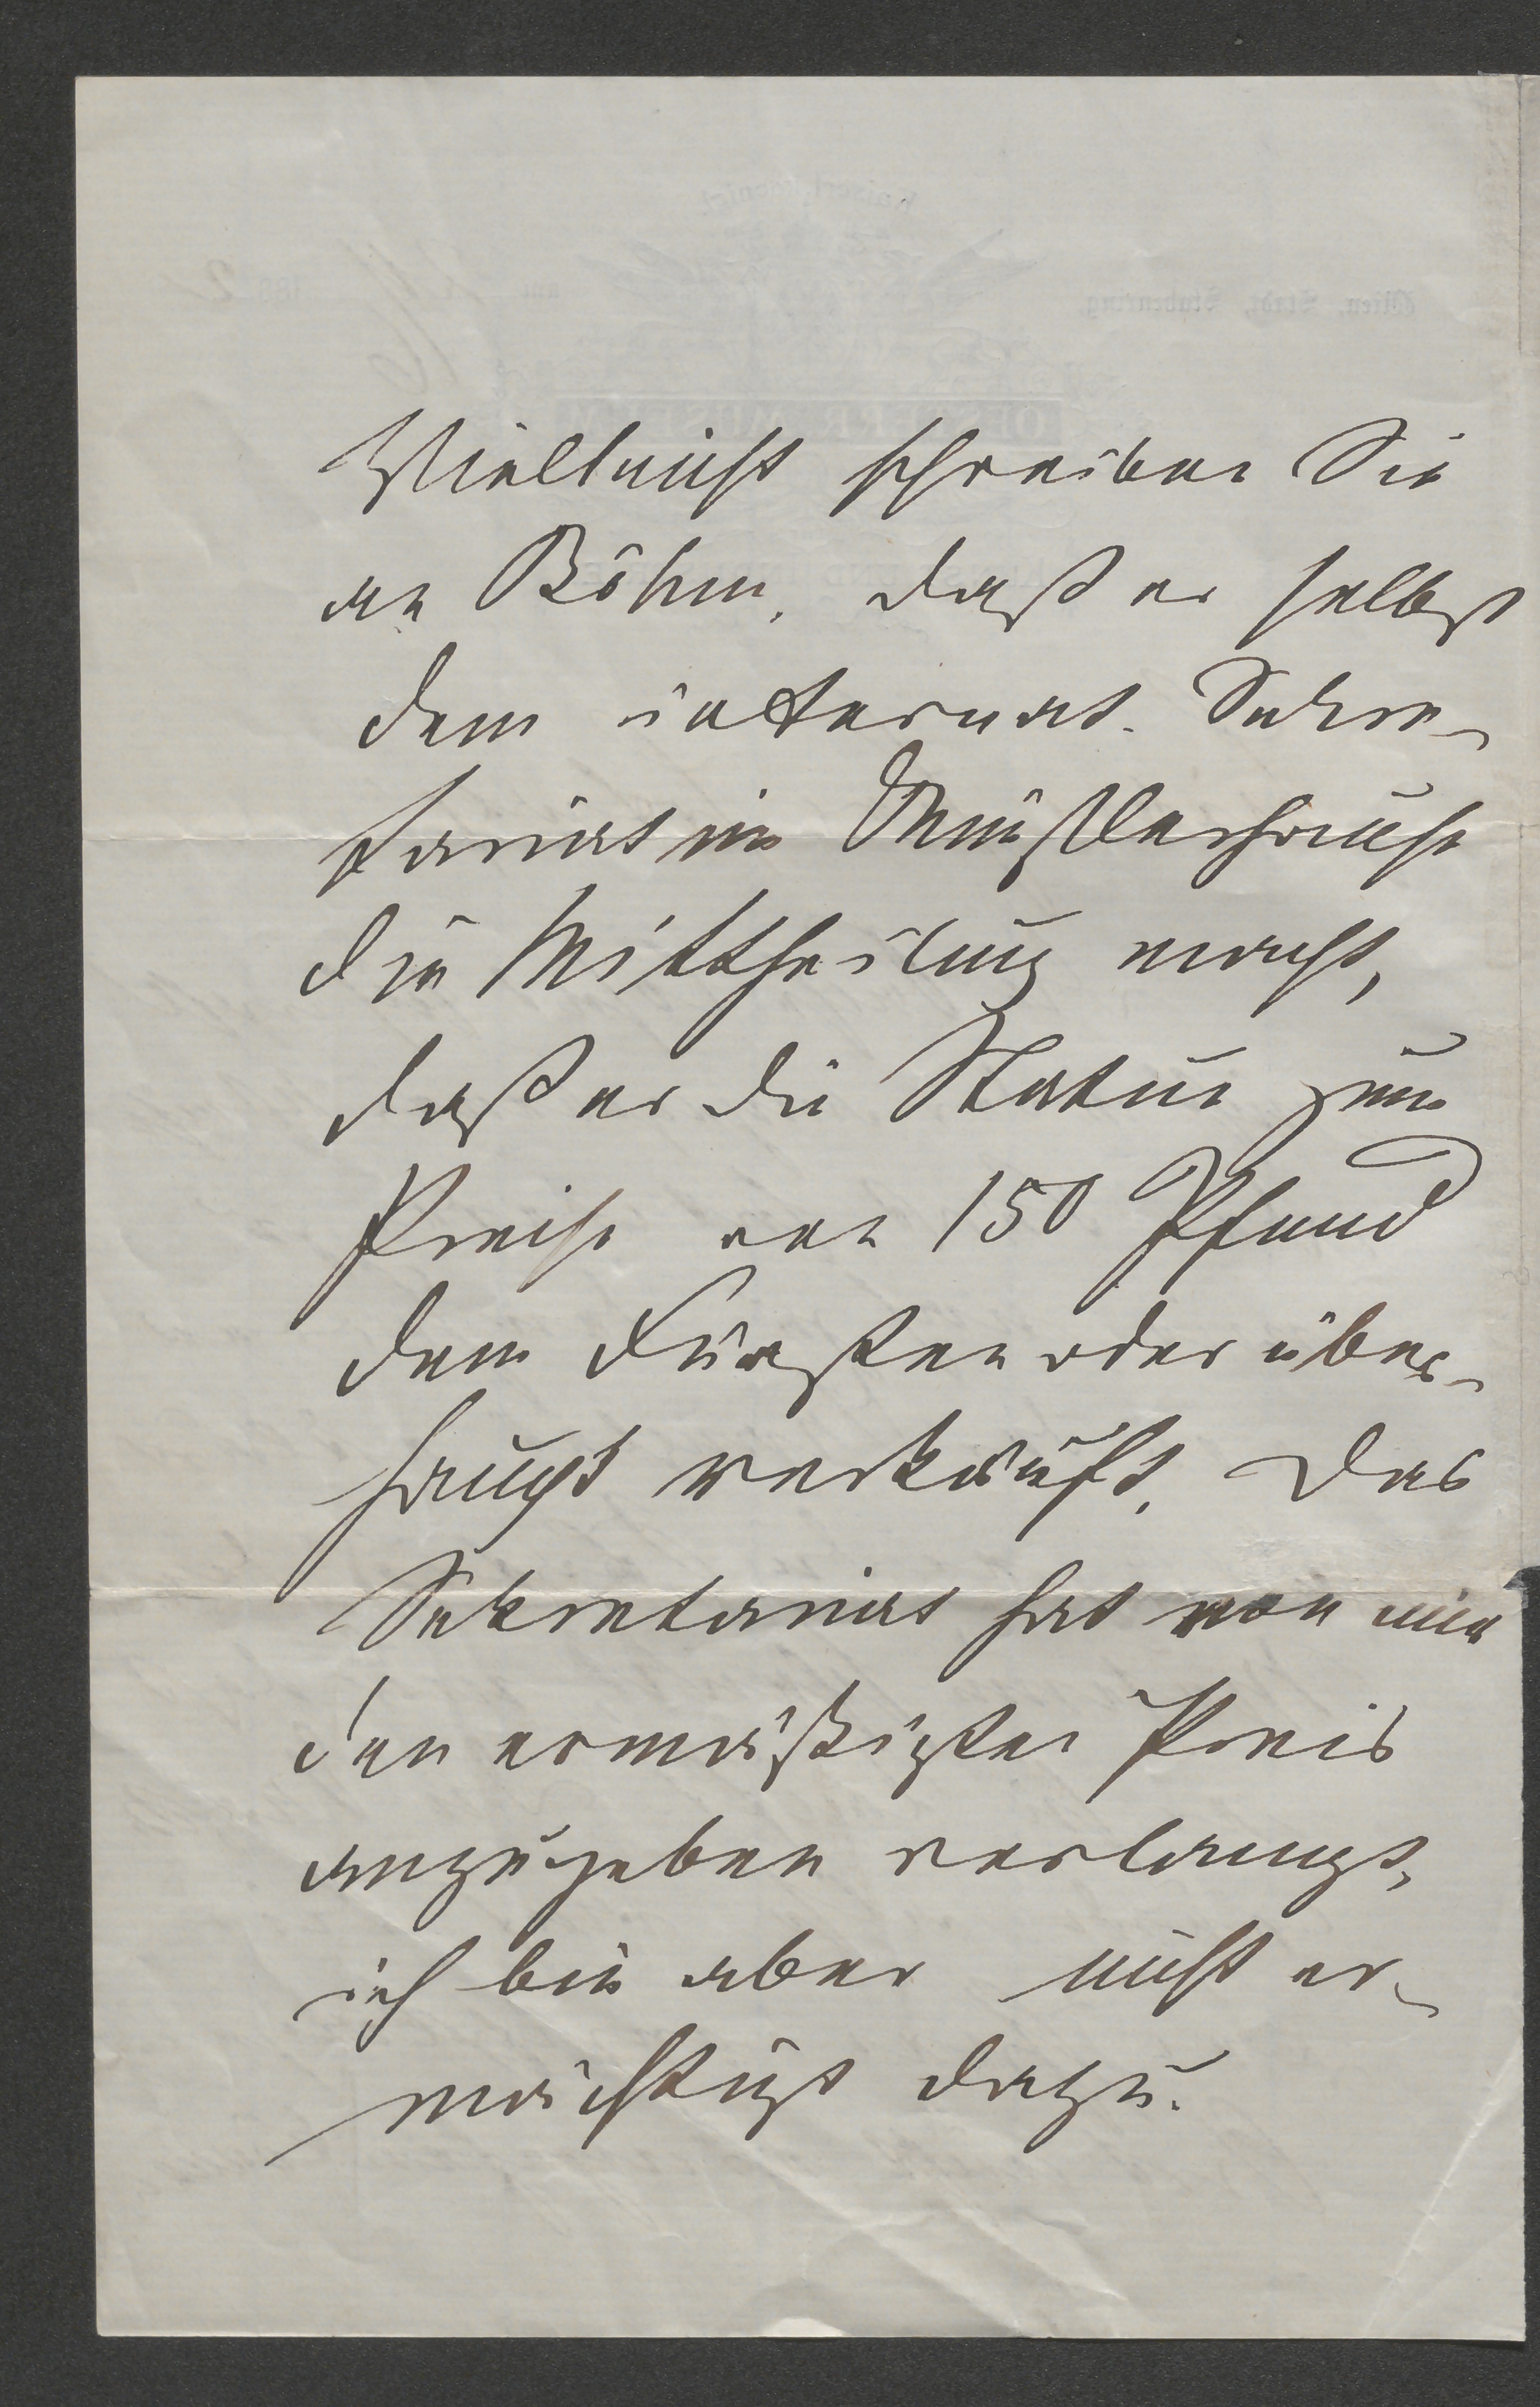 Vielleicht schreiben Sie
an Böhm, daß er selbst
dem internat. Sekre-
tariat im Künstlerhause
die Mittheilung macht,
daß er die Statue zum
Preise von 150 Pfund
dem Fürsten oder über-
haupt verkauft. Das
Sekretariat hat von mir
den ermäßigten Preis
anzugeben verlangt,
ich bin aber nicht er-
mächtigt dazu.